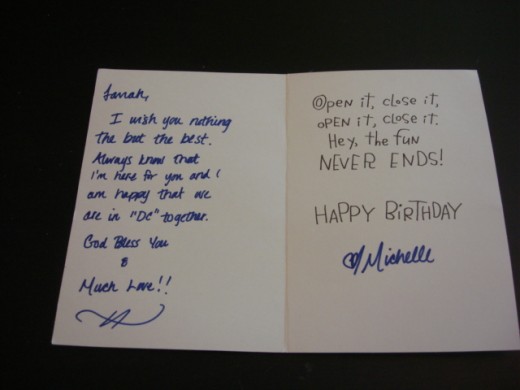 Sarah,
I wish you nothing
the but the best.
Always know that
I'm here for you and I
am happy that we
are in "DC" together.
God Bless You
&
Much Love!!
Open it, close it,
OPEN it, CLOSE it.
Hey, the fun
NEVER ENDS!
HAPPY BIRTHDAY
Michelle